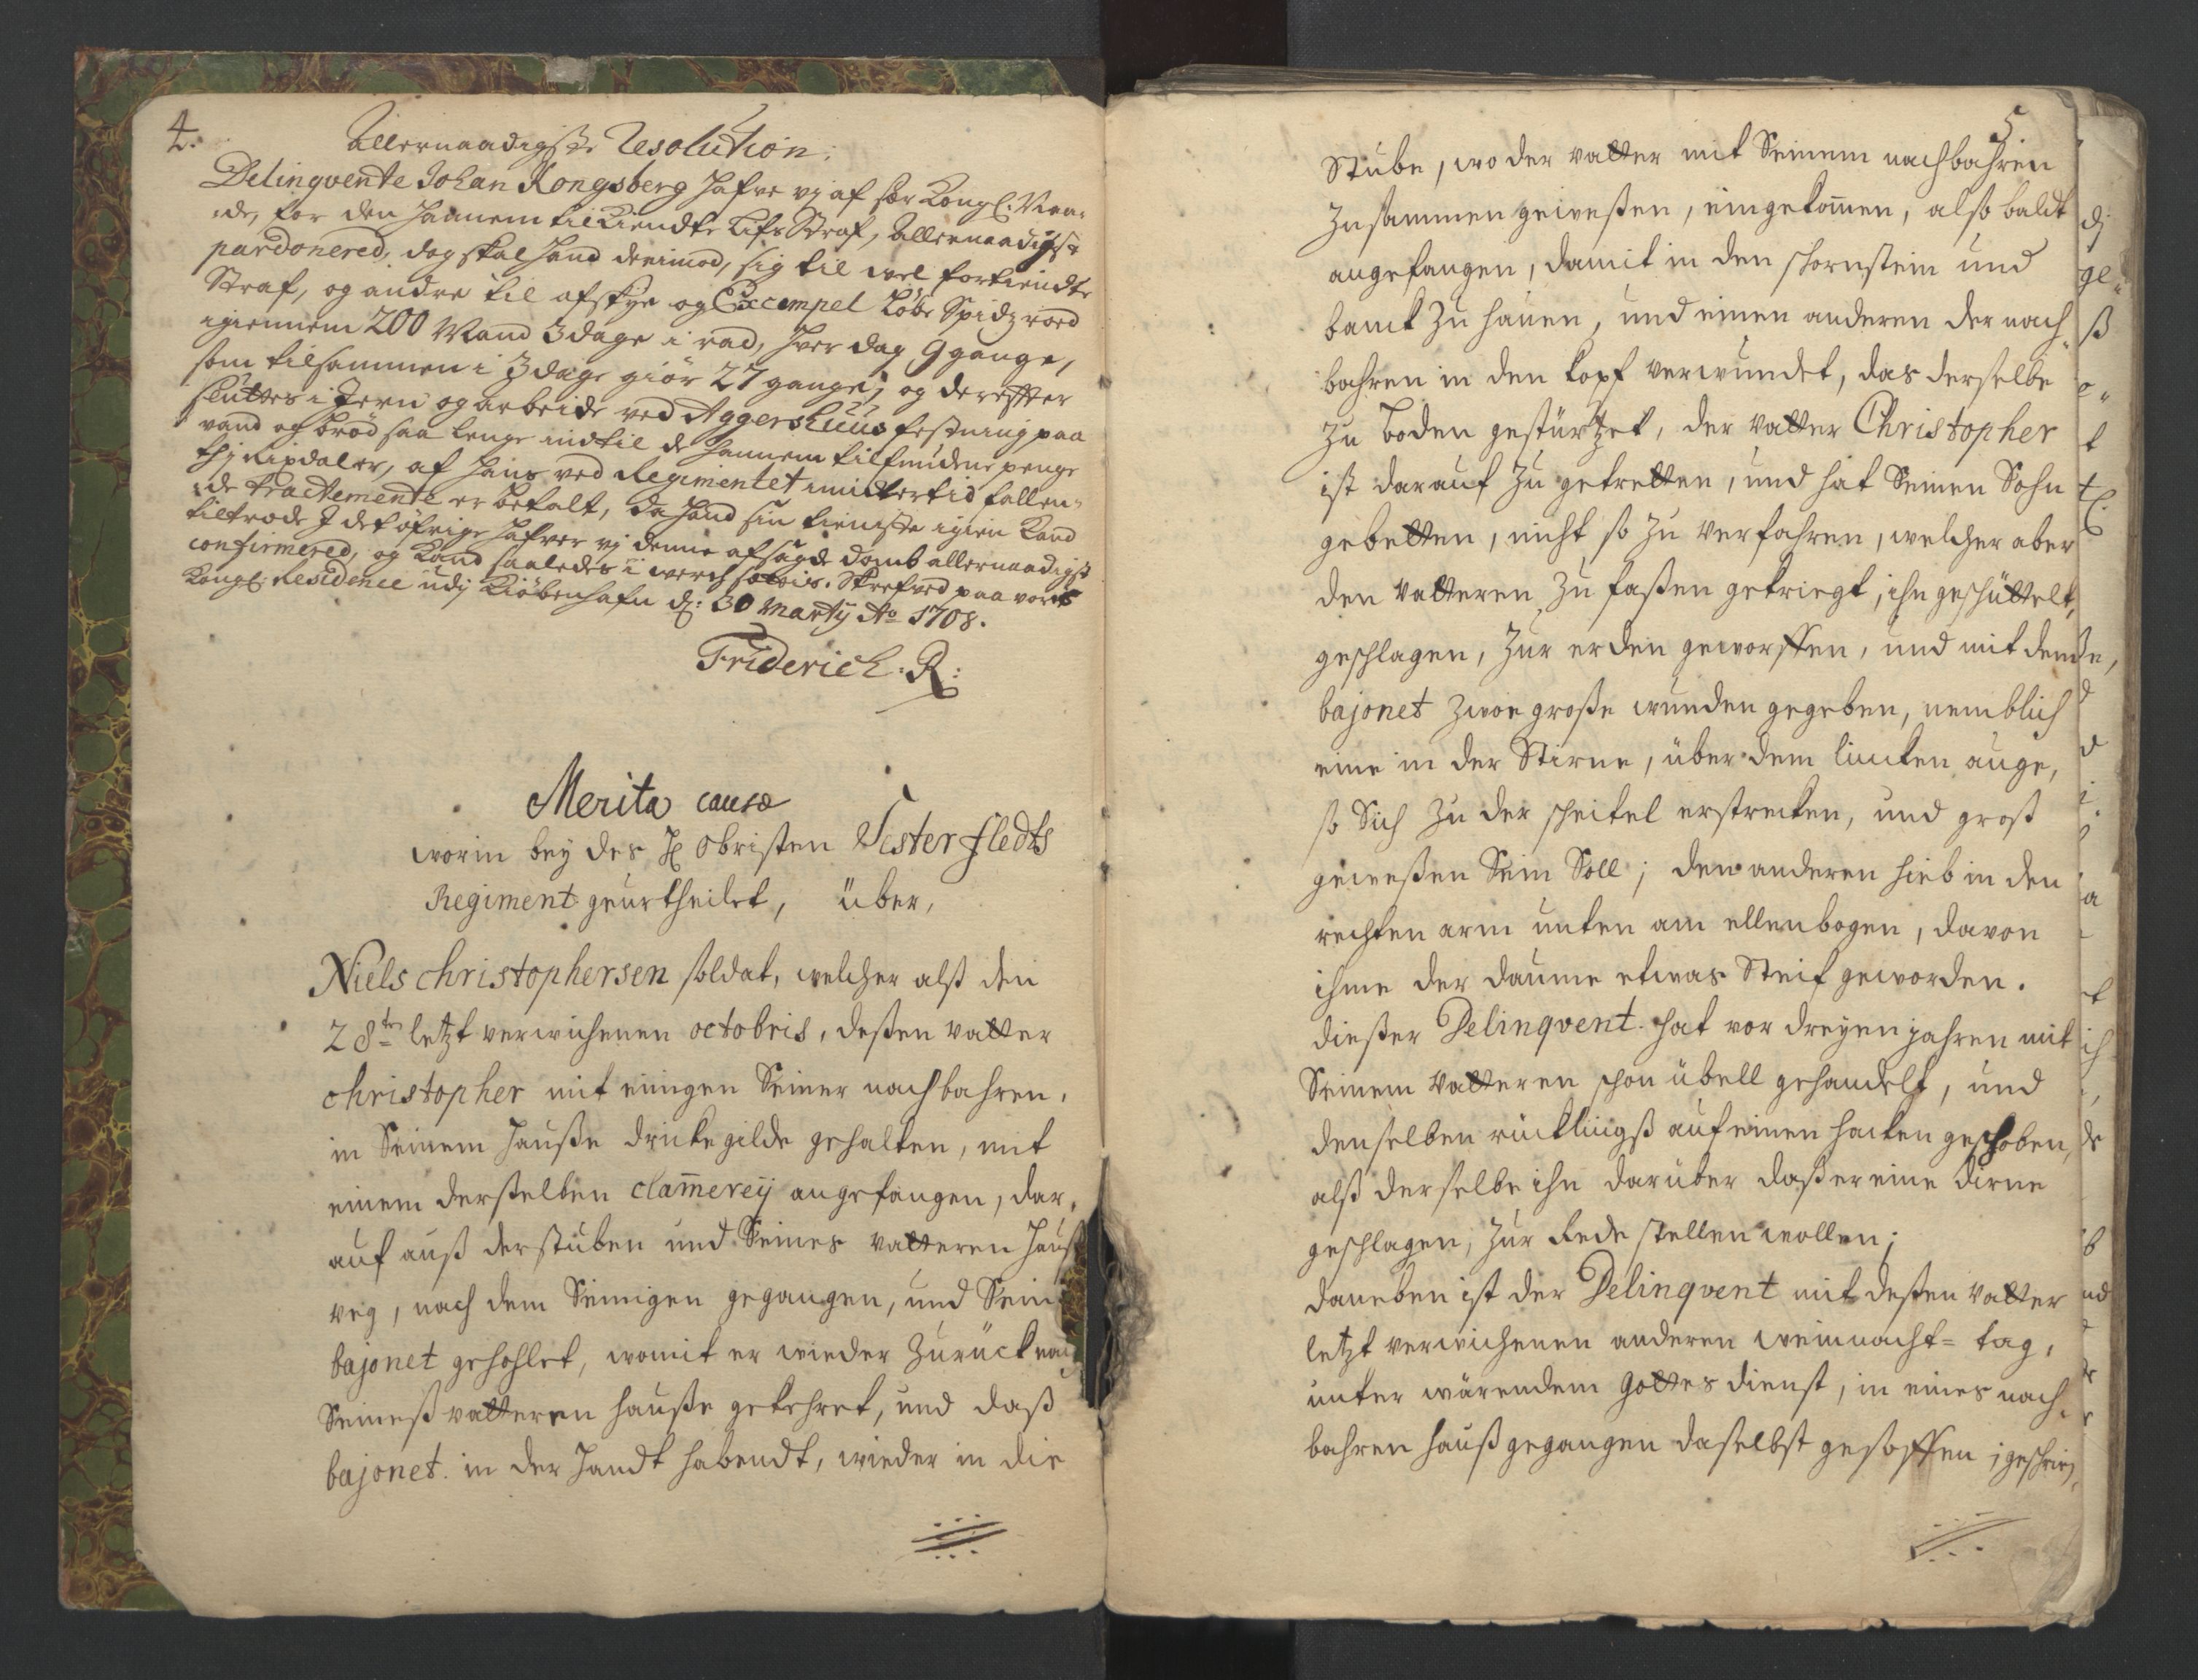 4.
Allernaadigste Resolution:
Delinqvente Johan Kongsberg hafve vj af sær Kongl: Naa-
de, for den hannem tilkiendte Lifs Straf, Allernaadigst
pardonered, dog skal hand derimod, sig til vel fortiendte
Straf, og andre til afskye og Excempel Løbe Spidzroed
igiennem 200 Mand 3 dage i rad, hver dag 9 gange,
som tilsammen i 3 dage giør 27 gange; og derefter
sluttes i Jern og arbeide ved Aggershuus festning paa
vand og brød saa lenge indtil de hannem tilfundene penge
Rixdaler, af hans ved Regimentet imidlertid fallen-
de tractemente er betalt, da hand sin tieniste igien kand
tiltræde I det øfrige hafver vj denne afsagde domb allernaadigst
confirmered, og kand saaledes i werch settis. Skrefved paa vores
Kongl: Residence udj Kiøbenhafn d: 30 Martij Ao 1708.
Friderich. R:
Merita causæ
worin bey des H Obristen Testerfledts
Regiment geurtheilet, über,
Niels christophersen soldat, welcher alß den
28ten letzt verwichenen octobris, deßen vatter
christopher mit einigen Seiner nachbahren,
in Seinem Hauße drinkegilde gehalten, mit
einem derselben clam̄erey angefangen, dar,
auf auß der stuben und Seines vatteren Hauß
weg, nach dem Seinigen gegangen, und Sein
bajonet gehohlet, womit er wieder zurück nach
Seineß vatteren hauße gekehret, und daß
bajonet. in der Handt habendt, wieder in die
5.
Stube, wo der vatter mit Seinem nachbahren
zusammen geweßen, eingekom̄en, also baldt
angefangen, damit in den schornstein und
banck zu hauen, und einen anderen der nach,
bahren in den kopf verwundet, das derselbe
zu boden gestürtzet, der vatter Christopher
ist darauf zu getretten, und hat Seinen Sohn
gebetten, nicht so zu verfahren, welcher aber
den vatteren zu faßen gekriegt, ihn geschüttelt,
geschlagen, zur erden geworffen, und mit dem
bajonet zwoe große wunden gegeben, nemblich
eine in der Stirne, über dem lincken auge,
so Sich zu der scheitel erstrecken, und groß
geweßen Sein Soll; den anderen hieb in den
rechten arm unten am ellenbogen, davon
ihme der daume etwas Steif geworden.
dießer Delinqvent. hat vor dreyen jahren mit
Seinem vatteren schon übell gehandelt, und
denselben rücklingß auf einen hacken geschoben,
alß derselbe ihn darüber daß er eine dirne
geschlagen, zur Rede stellen wollen;
daneben ist der Delinqvent mit deßen vatter
letzt verwichenen anderen weinacht= tag,
unter wärendem Gottes dienst, in eines nach,
bahren hauß gegangen daselbst gesoffen, geschrien,